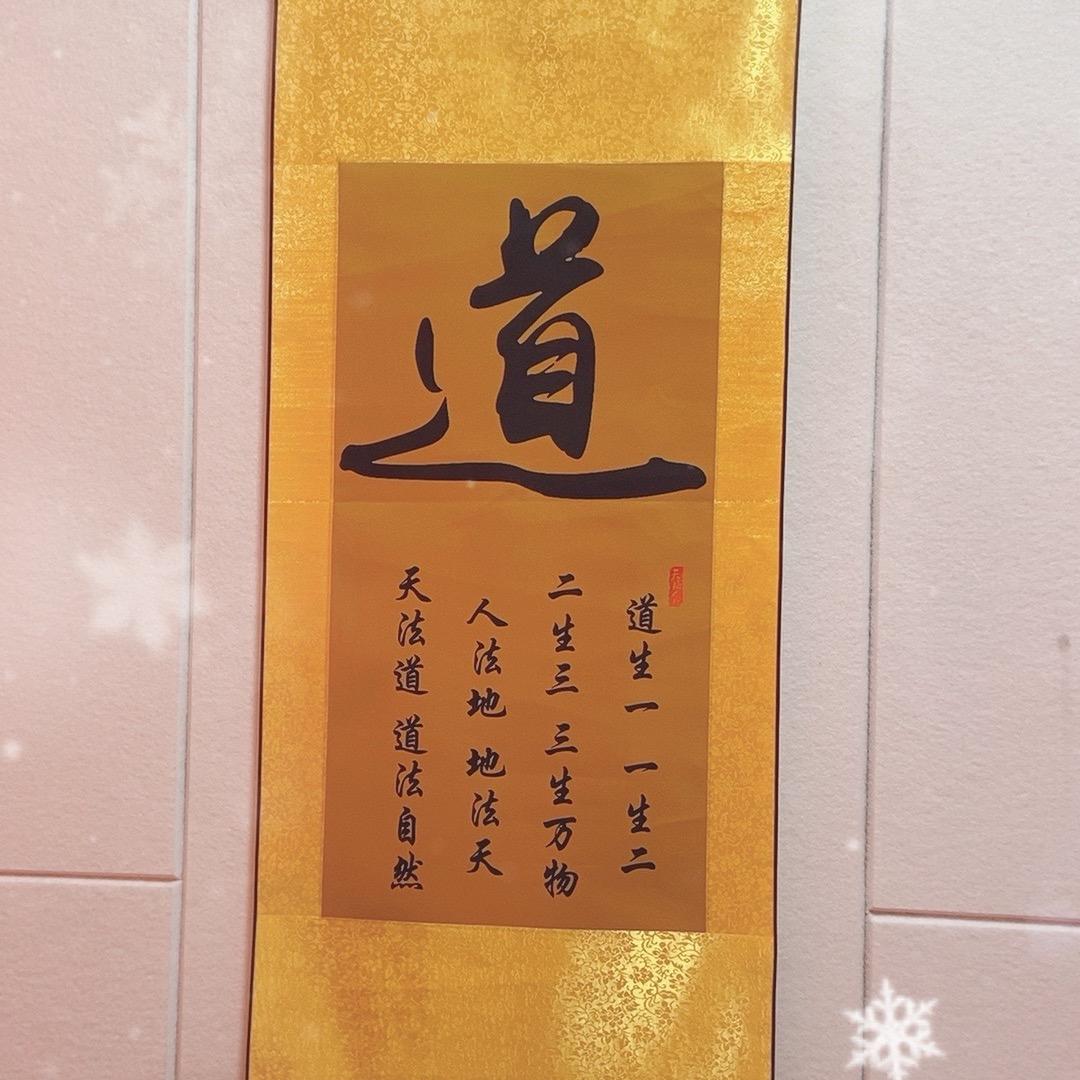 道
道生一 一生二
二生三 三生万物
人法地 地法天
天法道 道法自然